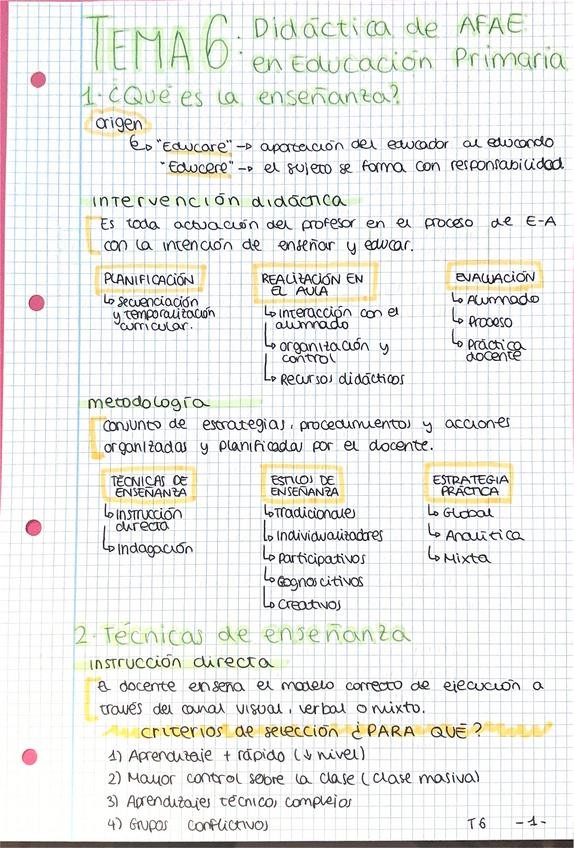 TEMA 6: Didáctica de AFAE
en Educación Primaria
1. ¿Qué es la enseñanza?
origen
↳ "Educare" → aportación del educador al educando
"Educere" → el sujeto se forma con responsabilidad
intervención didáctica
Es toda actuación del profesor en el proceso de E-A
con la intención de enseñar y educar.
PLANIFICACIÓN
↳ secuenciación
y temporalización
curricular.
REALIZACIÓN EN
EL AULA
↳ interacción con el
alumnado
↳ organización y
control
↳ Recursos didácticos
EVALUACIÓN
↳ Alumnado
↳ Proceso
↳ Práctica
docente
metodología
conjunto de estrategias, procedimientos y acciones
organizadas y planificadas por el docente.
TÉCNICAS DE
ENSEÑANZA
↳ Instrucción
directa
↳ Indagación
ESTILOS DE
ENSEÑANZA
↳ Tradicionales
↳ Individualizadores
↳ Participativos
↳ Cognoscitivos
↳ Creativos
ESTRATEGIA
PRÁCTICA
↳ Global
↳ Analítica
↳ Mixta
2. Técnicas de enseñanza
instrucción directa
El docente enseña el modelo correcto de ejecución a
través del canal visual, verbal o mixto.
criterios de selección ¿PARA QUÉ?
1) Aprendizaje + rápido (↓ nivel)
2) Mayor control sobre la clase (clase masiva)
3) Aprendizajes técnicos complejos
4) Grupos conflictivos
T6 -1-